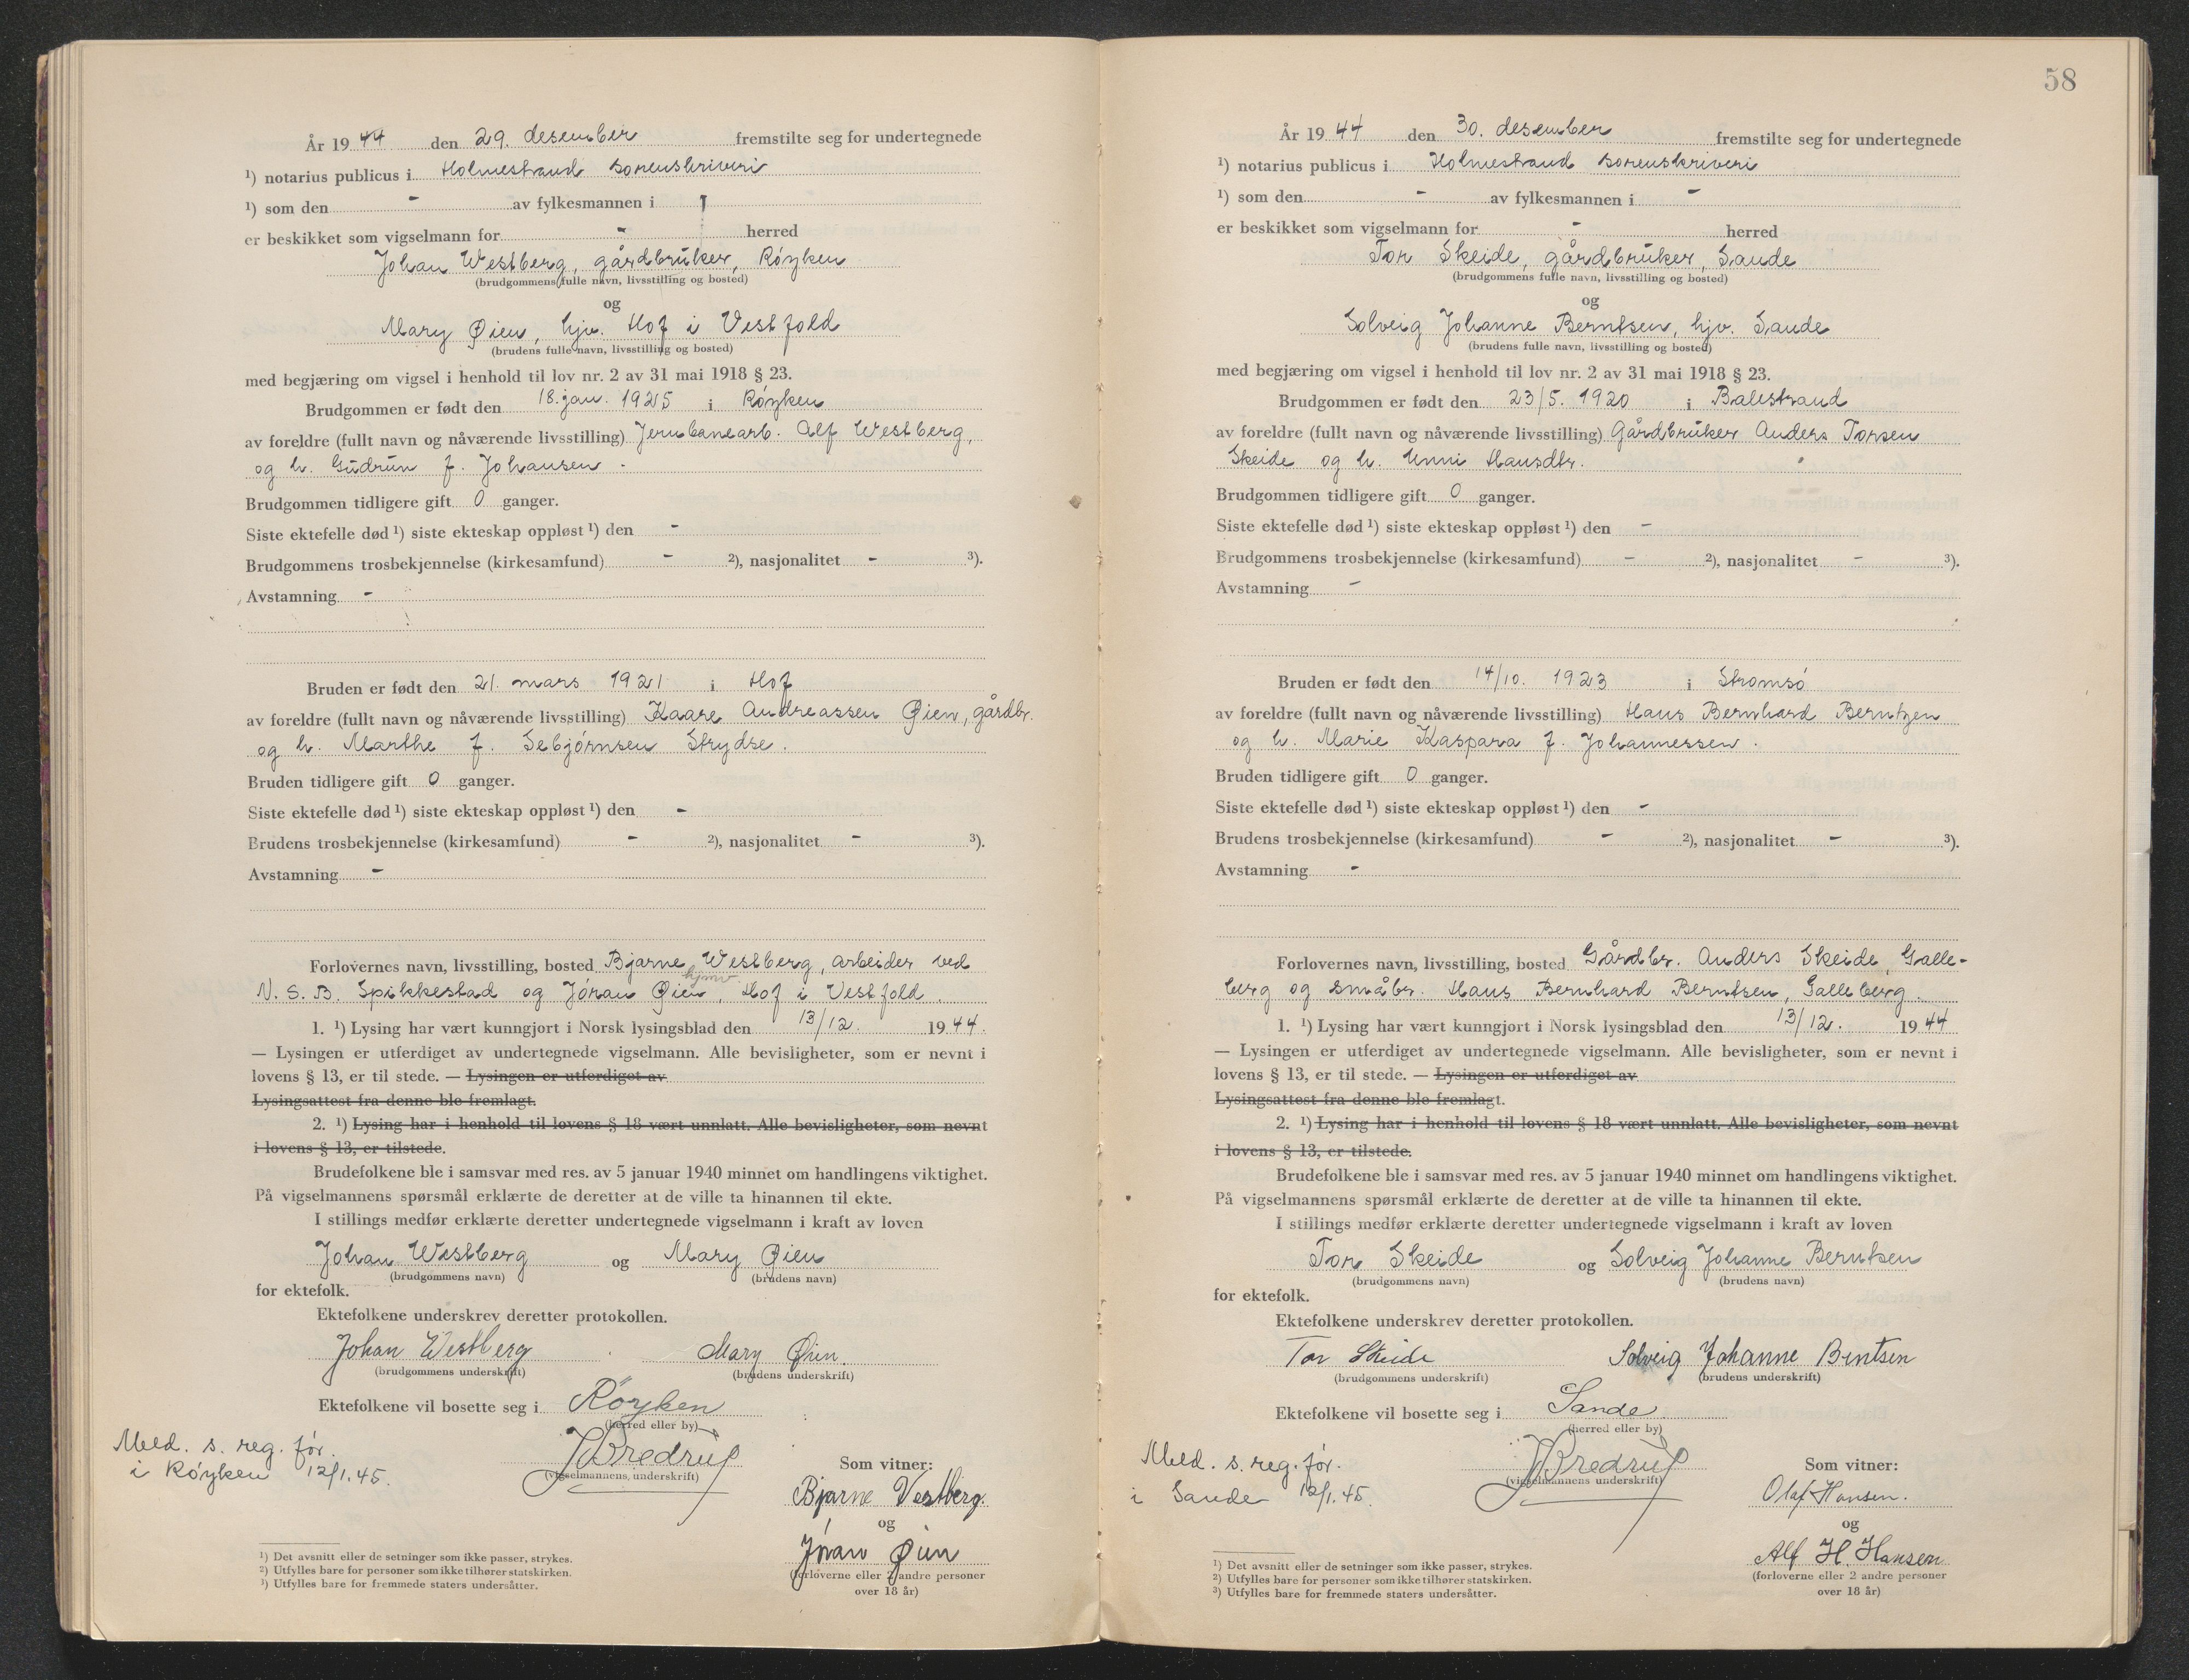 År 1944 den 29. desember fremstilte seg for undertegnede
¹) notarius publicus i Holmestrand sorenskriveri
¹) som den - av fylkesmannen i -
er beskikket som vigselmann for - herred
Johan Westberg, gårdbruker, Røyken
(brudgommens fulle navn, livsstilling og bosted)
og
Mary Øien, hjv. Hof i Vestfold
(brudens fulle navn, livsstilling og bosted)
med begjæring om vigsel i henhold til lov nr. 2 av 31 mai 1918 § 23.
Brudgommen er født den 18. jan. 1925 i Røyken
av foreldre (fullt navn og nåværende livsstilling) Jernbanearb. Alf Westberg,
og h. Gudrun f. Johansen.
Brudgommen tidligere gift 0 ganger.
Siste ektefelle død ¹) siste ekteskap oppløst ¹) den -
Brudgommens trosbekjennelse (kirkesamfund) - ²), nasjonalitet - ³).
Avstamning -
Bruden er født den 21. mars 1921 i Hof
av foreldre (fullt navn og nåværende livsstilling) Kaare Andreassen Øien, gårdbr.
og h. Marthe f. Sebjørnsen Strydse.
Bruden tidligere gift 0 ganger.
Siste ektefelle død ¹) siste ekteskap oppløst ¹) den -
Brudens trosbekjennelse (kirkesamfund) - ²), nasjonalitet - ³).
Avstamning -
Forlovernes navn, livsstilling, bosted Bjarne Westberg, arbeider ved
N. S. B. Spikkestad og Jøran Øien, Hof i Vestfold.
1. ¹) Lysing har vært kunngjort i Norsk lysingsblad den 13/12. 1944.
— Lysingen er utferdiget av undertegnede vigselmann. Alle bevisligheter, som er nevnt i
lovens § 13, er til stede. — Lysingen er utferdiget av
Lysingsattest fra denne ble fremlagt.
2. ¹) Lysing har i henhold til lovens § 18 vært unnlatt. Alle bevisligheter, som nevnt
i lovens § 13, er tilstede.
Brudefolkene ble i samsvar med res. av 5 januar 1940 minnet om handlingens viktighet.
På vigselmannens spørsmål erklærte de deretter at de ville ta hinannen til ekte.
I stillings medfør erklærte deretter undertegnede vigselmann i kraft av loven
Johan Westberg og Mary Øien
(brudgommens navn) (brudens navn)
for ektefolk.
Ektefolkene underskrev deretter protokollen.
Johan Westberg Mary Øien.
(brudgommens underskrift) (brudens underskrift)
Ektefolkene vil bosette seg i Røyken
(herred eller by)
Meld. s. reg. før.
i Røyken 12/1.45.
J Bredrup
(vigselmannens underskrift)
Som vitner:
Bjarne Vestberg.
og
Jøran Øien
(forloverne eller 2 andre personer
over 18 år)
¹) Det avsnitt eller de setninger som ikke passer, strykes.
²) Utfylles bare for personer som ikke tilhører statskirken.
³) Utfylles bare for fremmede staters undersåtter.
58
År 1944 den 30. desember fremstilte seg for undertegnede
¹) notarius publicus i Holmestrand sorenskriveri
¹) som den - av fylkesmannen i -
er beskikket som vigselmann for - herred
Tor Skeide, gårdbruker, Sande
(brudgommens fulle navn, livsstilling og bosted)
og
Solveig Johanne Berntsen, hjv. Sande
(brudens fulle navn, livsstilling og bosted)
med begjæring om vigsel i henhold til lov nr. 2 av 31 mai 1918 § 23.
Brudgommen er født den 23/5. 1920 i Balestrand
av foreldre (fullt navn og nåværende livsstilling) Gårdbruker Anders Torsen
Skeide og h. Unni Hansdtr.
Brudgommen tidligere gift 0 ganger.
Siste ektefelle død ¹) siste ekteskap oppløst ¹) den -
Brudgommens trosbekjennelse (kirkesamfund) - ²), nasjonalitet - ³).
Avstamning -
Bruden er født den 14/10. 1923 i Strømsø
av foreldre (fullt navn og nåværende livsstilling) Hans Bernhard Berntzen
og h. Marie Kaspara f. Johannessen.
Bruden tidligere gift 0 ganger.
Siste ektefelle død ¹) siste ekteskap oppløst ¹) den -
Brudens trosbekjennelse (kirkesamfund) - ²), nasjonalitet - ³).
Avstamning -
Forlovernes navn, livsstilling, bosted Gårdbr. Anders Skeide, Galle-
berg og småbr. Hans Bernhard Berntsen, Galleberg.
1. ¹) Lysing har vært kunngjort i Norsk lysingsblad den 13/12. 1944
— Lysingen er utferdiget av undertegnede vigselmann. Alle bevisligheter, som er nevnt i
lovens § 13, er til stede. — Lysingen er utferdiget av
Lysingsattest fra denne ble fremlagt.
2. ¹) Lysing har i henhold til lovens § 18 vært unnlatt. Alle bevisligheter, som nevnt
i lovens § 13, er tilstede.
Brudefolkene ble i samsvar med res. av 5 januar 1940 minnet om handlingens viktighet.
På vigselmannens spørsmål erklærte de deretter at de ville ta hinannen til ekte.
I stillings medfør erklærte deretter undertegnede vigselmann i kraft av loven
Tor Skeide og Solveig Johanne Berntsen
(brudgommens navn) (brudens navn)
for ektefolk.
Ektefolkene underskrev deretter protokollen.
Tor Skeide Solveig Johanne Berntsen
(brudgommens underskrift) (brudens underskrift)
Ektefolkene vil bosette seg i Sande
(herred eller by)
Meld. s. reg. før.
i Sande 12/1.45.
J Bredrup
(vigselmannens underskrift)
Som vitner:
Olaf Hansen.
og
Alf H. Hansen
(forloverne eller 2 andre personer
over 18 år)
¹) Det avsnitt eller de setninger som ikke passer, strykes.
²) Utfylles bare for personer som ikke tilhører statskirken.
³) Utfylles bare for fremmede staters undersåtter.